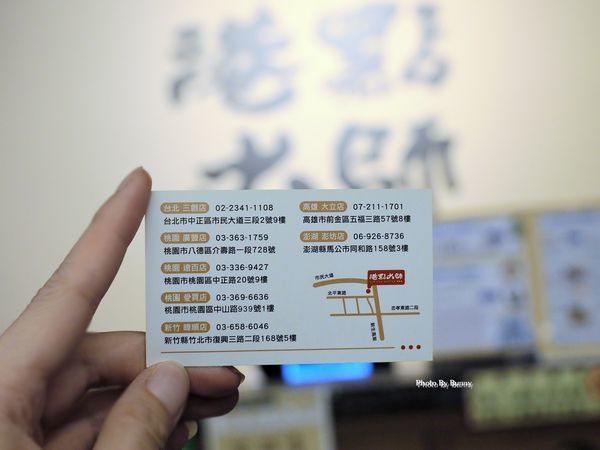 港點
大師
台北 三創店 02-2341-1108
台北市中正區市民大道三段2號9樓
桃園 廣豐店 03-363-1759
桃園市八德區介壽路一段728號
桃園 遠百店 03-336-9427
桃園市桃園區中正路20號9樓
桃園 愛買店 03-369-6636
桃園市桃園區中山路939號1樓
新竹 暐順店 03-658-6046
新竹縣竹北市復興三路二段168號5樓
高雄 大立店 07-211-1701
高雄市前金區五福三路57號8樓
澎湖 澎坊店 06-926-8736
澎湖縣馬公市同和路158號3樓
市民大道
港點大師
北平東路
忠孝東路二段
Photo By Bunny